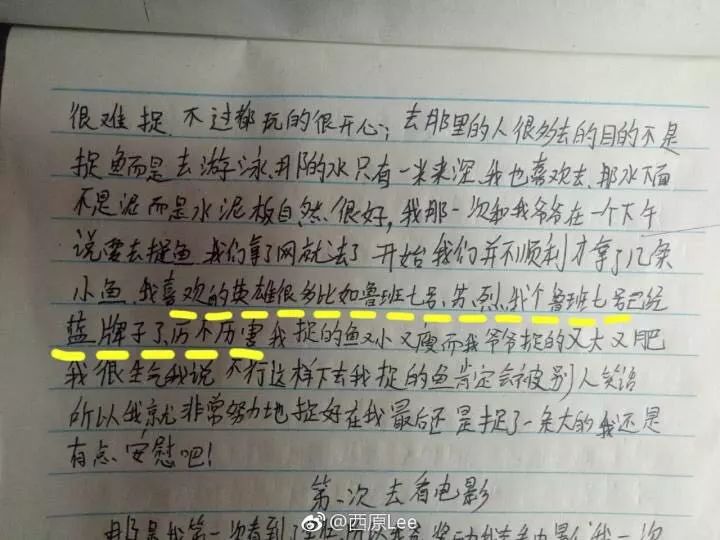 很难捉,不过都玩的很开心;去那里的人很多去的目的不是
捉鱼而是去游泳,那的水只有一米来深,我也喜欢去,那水下面
不是泥而是水泥板自然很好,我那一次和我爷爷在一个下午
说要去捉鱼,我们拿了网就去了,开始我们并不顺利才拿了几条
小鱼,我喜欢的英雄很多比如鲁班七号、苏烈,我个鲁班七号已经
蓝牌子了,厉不厉害,我捉的鱼又小又瘦而我爷爷捉的又大又肥
我很生气我说不行这样下去我捉的鱼肯定会被别人笑话
所以我就非常努力地捉好在我最后还是捉了一条大的我还是
有点安慰吧!
第一次去看电影
那是我第一次看到
@西原Lee